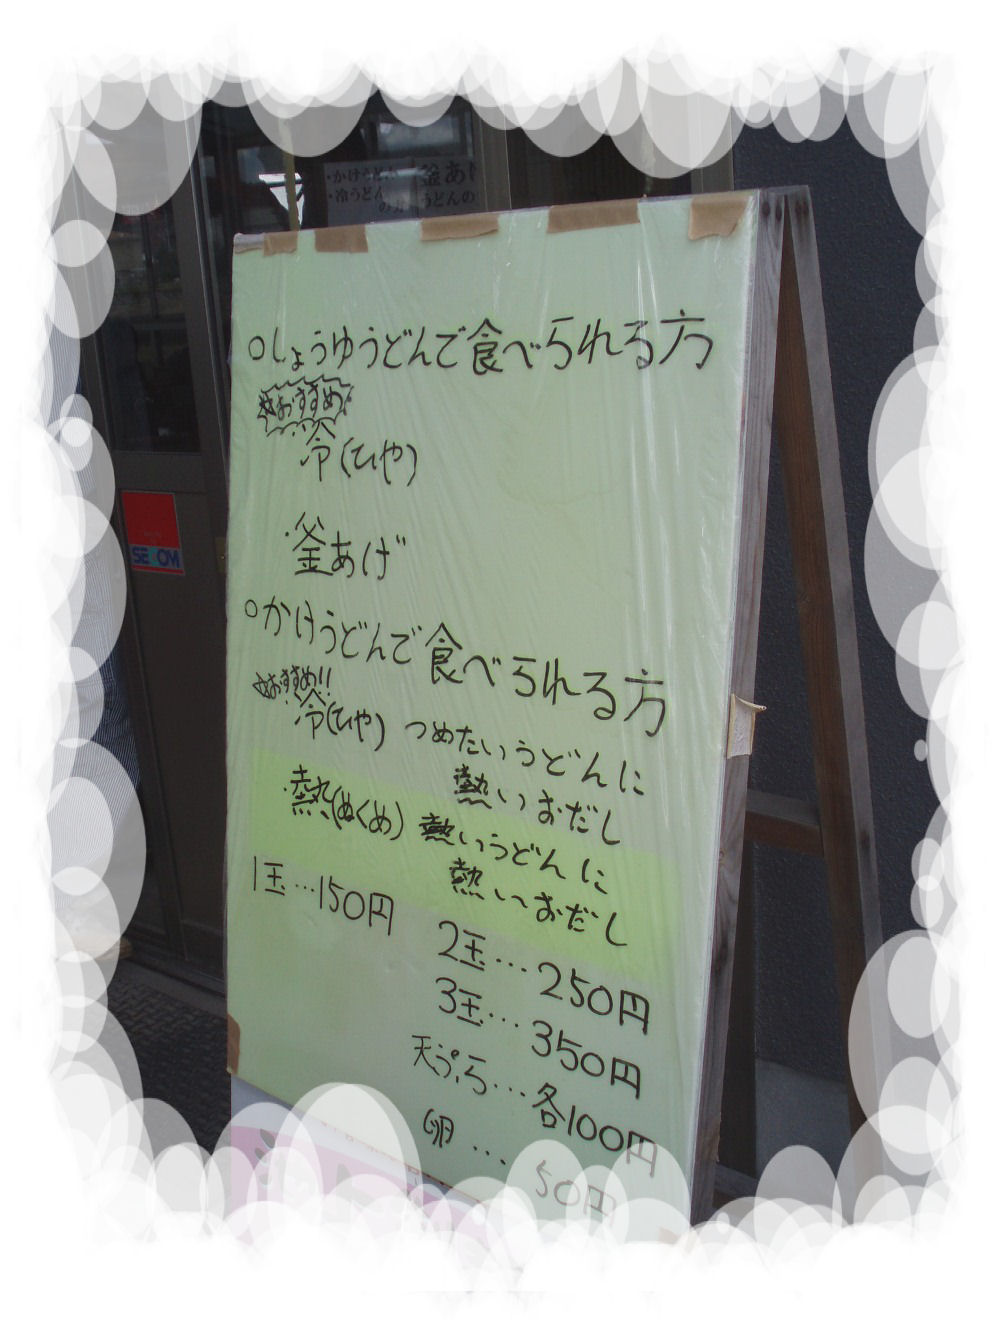 ・かけうどん
・冷うどん
の方
釜あ
うどんの
○しょうゆうどんで食べられる方
☆おすすめ
・冷(ひや)
・釜あげ
○かけうどんで食べられる方
☆おすすめ!!
・冷(ひや) つめたいうどんに
熱いおだし
・熱(ぬくめ) 熱いうどんに
熱いおだし
1玉…150円
2玉…250円
3玉…350円
天ぷら…各100円
卵…50円
SECOM